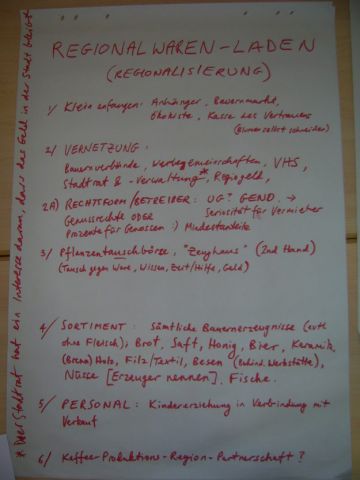 REGIONALWAREN-LADEN
(REGIONALISIERUNG)
1/ Klein anfangen: Anhänger, Bauernmarkt,
Ökokiste, Kasse des Vertrauens
(Blumen selbst schneiden)
2/ VERNETZUNG:
Bauernverbände, Werbegemeinschaften, VHS,
Stadtrat & -Verwaltung*, Regiogeld,
2A) RECHTSFORM/BETREIBER: UG? GENO. →
Genussrechte ODER Seriosität für Vermieter
Prozente für Genossen :) Mindestanteile
3/ Pflanzentauschbörse, "Zeughaus" (2nd Hand)
(Tausch gegen Ware, Wissen, Zeit/Hilfe, Geld)
4/ SORTIMENT: sämtliche Bauernerzeugnisse (evtl
ohne Fleisch), Brot, Saft, Honig, Bier, Keramik,
(Brenn) Holz, Filz/Textil, Besen (Behind. Werkstätte),
Nüsse [Erzeuger nennen], Fische.
5/ PERSONAL: Kindererziehung in Verbindung mit
Verkauf
6/ Kaffee-Produktions-Region-Partnerschaft?
* Der Stadtrat hat ein Interesse daran, dass das Geld in der Stadt bleibt